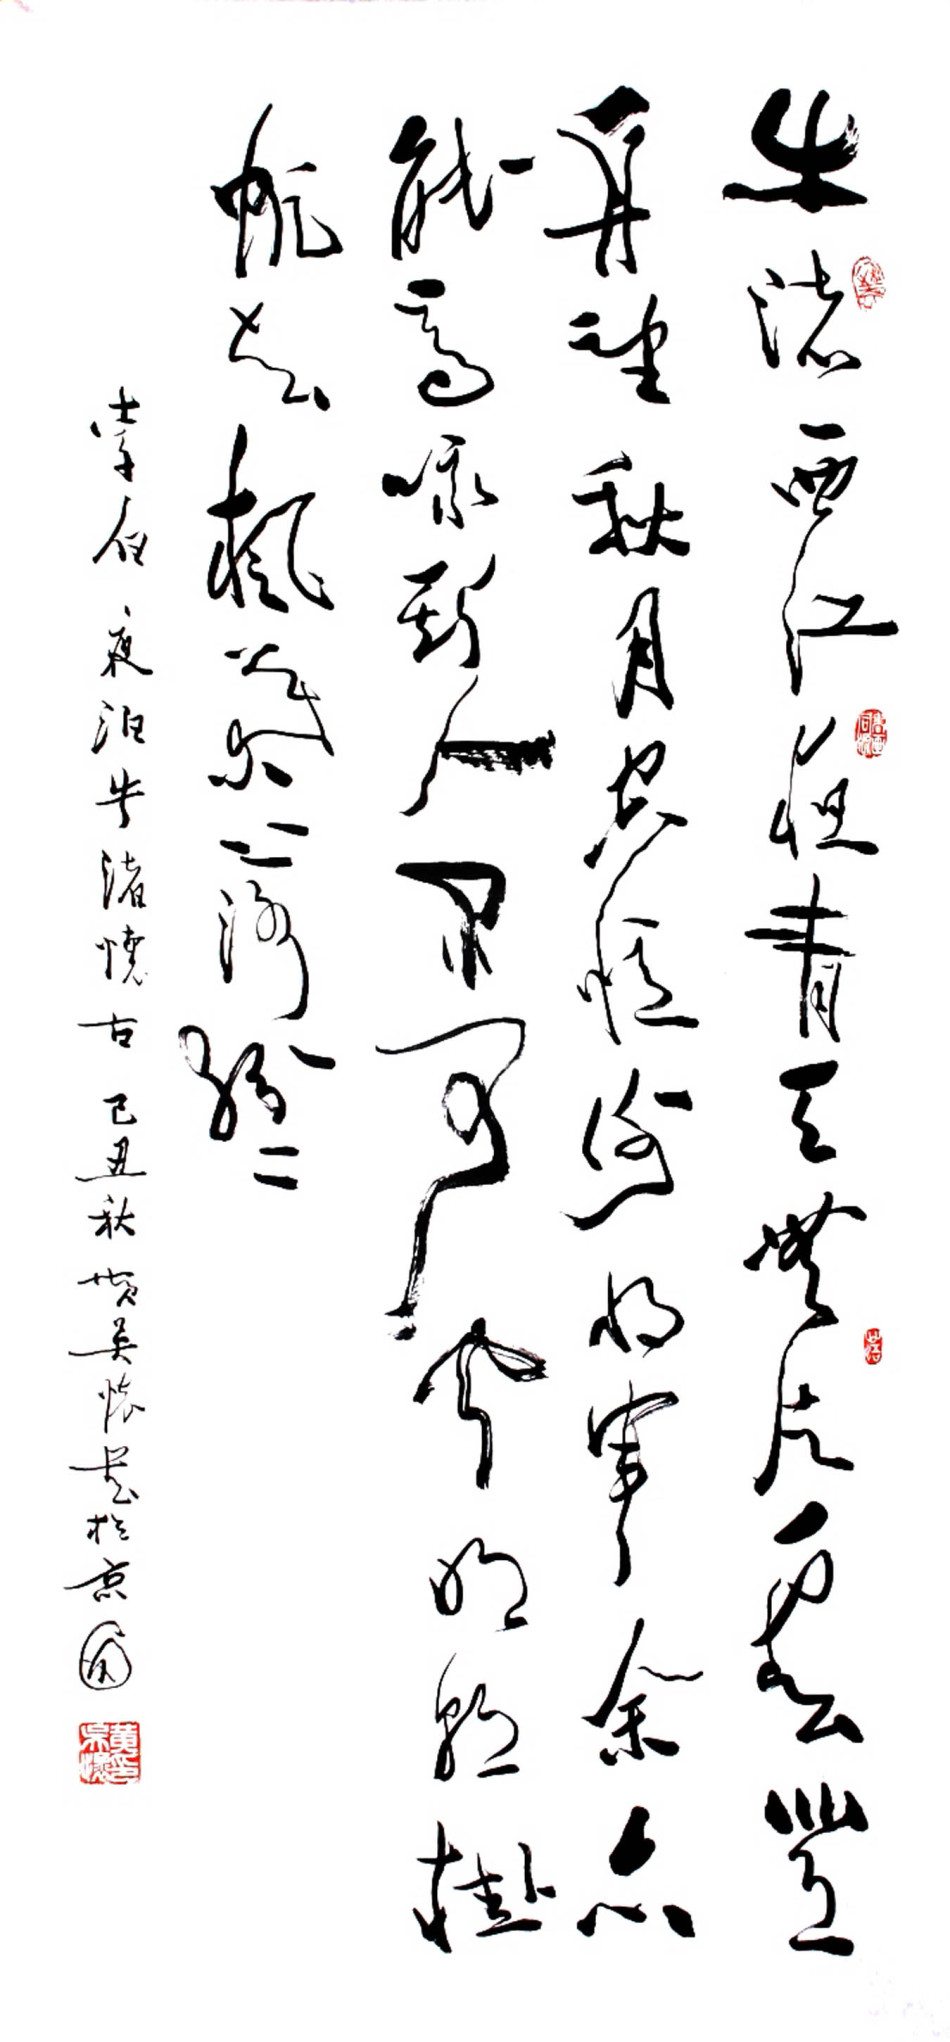 牛渚西江夜青天無片雲登
舟望秋月空憶謝將軍余亦
能高詠斯人不可聞明朝掛
帆去楓葉落紛〻
李白夜泊牛渚懷古 己丑秋 黃吳懷書於京